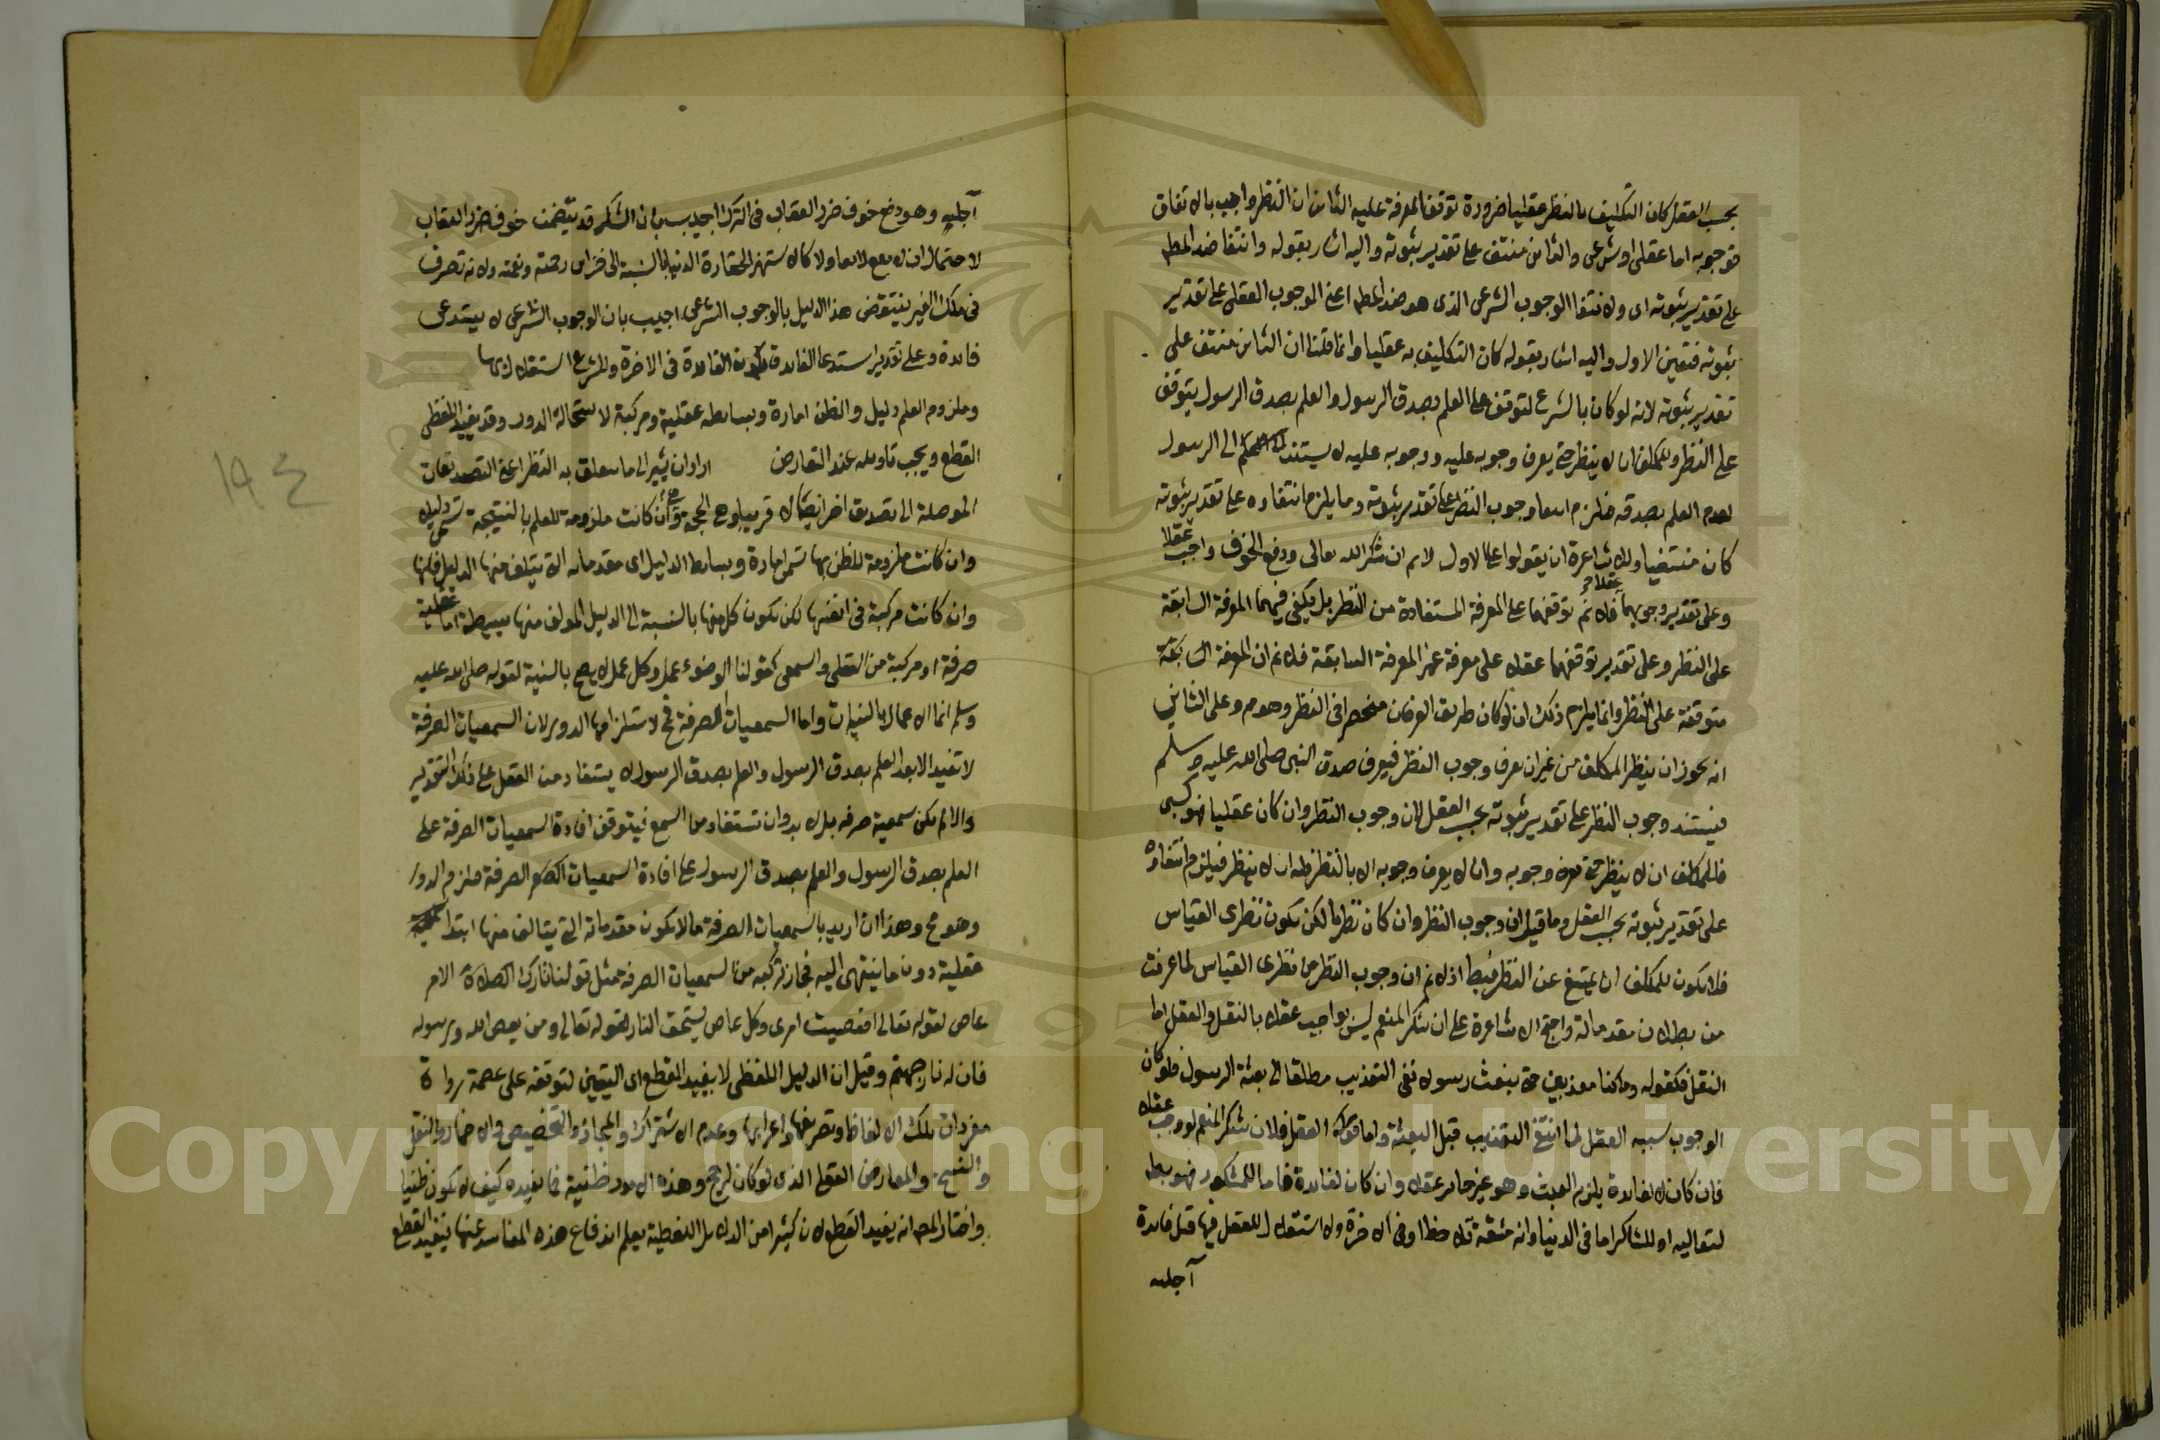 بحسب العقل كان التكليف بالنظر عقليا ضرورة توقف المعرفة عليه الثانى ان النظر واجب بالاتفاق
فوجوبه اما عقلى او شرعى والثانى منتف على تقدير ثبوته واليه اشار بقوله وانتفا ضد المط
على تقدير ثبوته اى ولانتفا الوجوب الشرعى الذى هو ضد المط اعنى الوجوب العقلى على تقدير
ثبوته فتعين الاول واليه اشار بقوله كان التكليف به عقليا وانما قلنا ان الثانى منتف على
تقدير ثبوته لانه لو كان بالشرع لتوقف على العلم بصدق الرسول والعلم بصدق الرسول يتوقف
على النظر وللمكلف ان لا ينظر حتى يعرف وجوبه عليه ووجوبه عليه لا يستند الى الرسول
لعدم العلم بصدقه فلزم انتفا وجوب النظر على تقدير ثبوته وما يلزم انتفاده على تقدير ثبوته
كان منتفيا وللاشاعرة ان يقولوا على الاول لانم ان شكر الله تعالى ودفع الخوف واجب عقلا
وعلى تقدير وجوبهما عقلا فلا نم توقفهما على المعرفة المستفادة من النظر بل يكفى فيهما المعرفة السابقة
على النظر وعلى تقدير توقفهما عقلا على معرفة غير المعرفة السابقة فلا نم ان المعرفة السابقة
متوقفة على النظر وانما يلزم ذلك ان لو كان طريق العرفان منحصرا فى النظر وهو م وعلى الثانى
انه يجوز ان ينظر المكلف من غير ان يعرف وجوب النظر فيعرف صدق النبى صلى الله عليه وسلم
فيستند وجوب النظر على تقدير ثبوته بحسب العقل لان وجوب النظر وان كان عقليا فهو كسبى
فللمكلف ان لا ينظر حتى يعرف وجوبه وان لا يعرف وجوبه الا بالنظر فله ان لا ينظر فيلزم انتفاده
على تقدير ثبوته بحسب العقل وما قيل ان وجوب النظر وان كان نظريا لكن يكون نظرى القياس
فلا يكون للمكلف ان يمتنع عن النظر فبط اذ لا نم ان وجوب النظر من نظرى القياس لما عرفت
من بطلان مقدماته واحتج الاشاعرة على ان شكر المنعم ليس بواجب عقلا بالنقل والعقل اما
النقل فكقوله وما كنا معذبين حتى نبعث رسولا نفى التعذيب مطلقا الى بعثة الرسول فلو كان
الوجوب سببه العقل لما انتفى التعذيب قبل البعثة واما العقل فلان شكر المنعم لو وجب عقلا
فان كان لا لفائدة يلزم العبث وهو غير جائز عقلا وان كان لفائدة فاما للمشكور فهو بط
لتعاليه او للشاكر اما فى الدنيا وانه مشقة بلا حظ او فى الاخرة ولا استقلال للعقل فيها قيل فائدة
آجليه
آجليه وهو دفع خوف ضرر العقاب فى الترك اجيب بان الشكر قد يتضمن خوف ضرر العقاب
لاحتمال ان لا يقع لائقا ولا كالاستهزا لحقارة الدنيا بالنسبة الى خزاين رحمته ونعمته ولانه تصرف
فى ملك الغير ينتقض هذا الدليل بالوجوب الشرعى اجيب بان الوجوب الشرعى لا يستدعى
فائدة وعلى تقدير استدعا الفائدة تكون الفائدة فى الاخرة وللشرع استقلال بها
وملزوم العلم دليل والظن امارة وبسايطه عقلية ومركبة لاستحالة الدور وقد يفيد اللفظى
القطع ويجب تاويله عند التعارض اراد ان يشير الى ما يتعلق به النظر اعنى التصديقات
الموصلة الى تصديق اخر ايصالا قريبا وهى الحجة وهى ان كانت ملزومة للعلم بالنتيجة تسمى دليلا
وان كانت ملزومة للظن بها تسمى امارة وبسايط الدليل اى مقدماته التى يتالف منها الدليل فانها
وان كانت مركبة فى انفسها لكن يكون كل منها بالنسبة الى الدليل المولف منها بسيطة اما عقلية
صرفة او مركبة من العقلى والسمعى كقولنا الوضوء عمل وكل عمل لا يصح بالنية لقوله صلى الله عليه
وسلم انما الاعمال بالنيات واما السمعيات الصرفة فمح لاستلزامها الدور لان السمعيات الصرفة
لا تفيد الا بعد العلم بصدق الرسول والعلم بصدق الرسول لا يستفاد من العقل على ذلك التقدير
والا لم يكن سمعية صرفه بل لا بد وان تستفاد من السمع فيتوقف افادة السمعيات الصرفة على
العلم بصدق الرسول والعلم بصدق الرسول على افادة السمعيات الصرفة فلزم الدور
وهو مح وهذا ان اريد بالسمعيات الصرفة ما لا يكون مقدماته التى يتالف منها ابتدا
عقلية دون ما ينتهى اليه فجاز تركبه من السمعيات الصرفه مثل قولنا تارك الصلاة الامر
عاص لقوله تعالى افعصيت امرى وكل عاص يستحق النار لقوله تعالى ومن يعص الله ورسوله
فان له نار جهنم وقيل ان الدليل اللفظى لا يفيد القطع اى اليقين لتوقفه على عصمة رواة
مفردات تلك الالفاظ وتصريفها واعرابها وعدم الاشتراك والمجاز والتخصيص والاضمار والنقل
والنسخ والمعارض العقلى الذى لو كان لرجح وهذه الامور ظنية فما تفيده كيف لا يكون ظنيا
واختار المص انه يفيد القطع لان كثيرا من الدلايل اللفظية يعلم اندفاع هذه المفاسد عنها فيفيد القطع
١٩٤
Copyright © King Saud University
1957